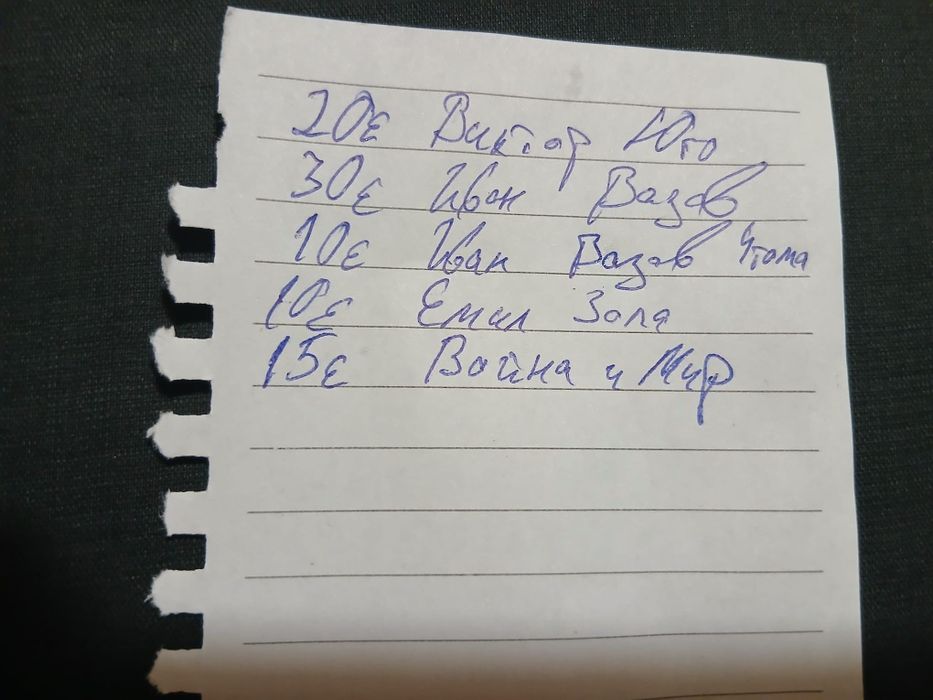 20€ Виктор Юго
30€ Иван Вазов
10€ Иван Вазов 4тома
10€ Емил Зола
15€ Война и Мир